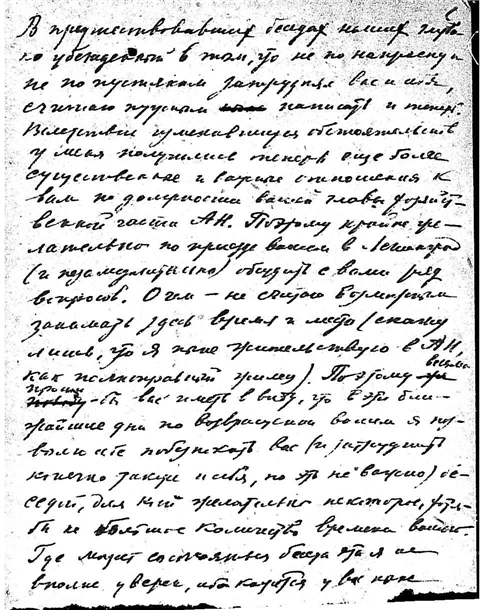 В предшествовавших беседах наших глубо-
ко убежденный в том, что не по напрасну и
не по пустякам затруднял вас и себя,
считаю нужным написать и теперь.
Вследствие изменившихся обстоятельств
у меня получились теперь еще более
существенные и важные отношения к
вам по должности вашей главы хозяйст-
венной части АН. Поэтому крайне же-
лательно по приезде вашем в Ленинград
(и незамедлительно) обсудить с вами ряд
вопросов. О чем – не считаю
занимать здесь время и место (скажу
лишь, что я ныне жительствую в АН,
как полноправный жилец). Поэтому весьма
просил бы вас иметь в виду, что в эти бли-
жайшие дни по возвращении вашем я поз-
волил бы себе побеспокоить вас (и затруднить
конечно также и себя, но это не важно) бе-
седой, для коей желательно некоторое, хотя
бы не большое количество времени вашего.
Где может состояться беседа эта я не
вполне уверен, ибо кажется у вас ныне